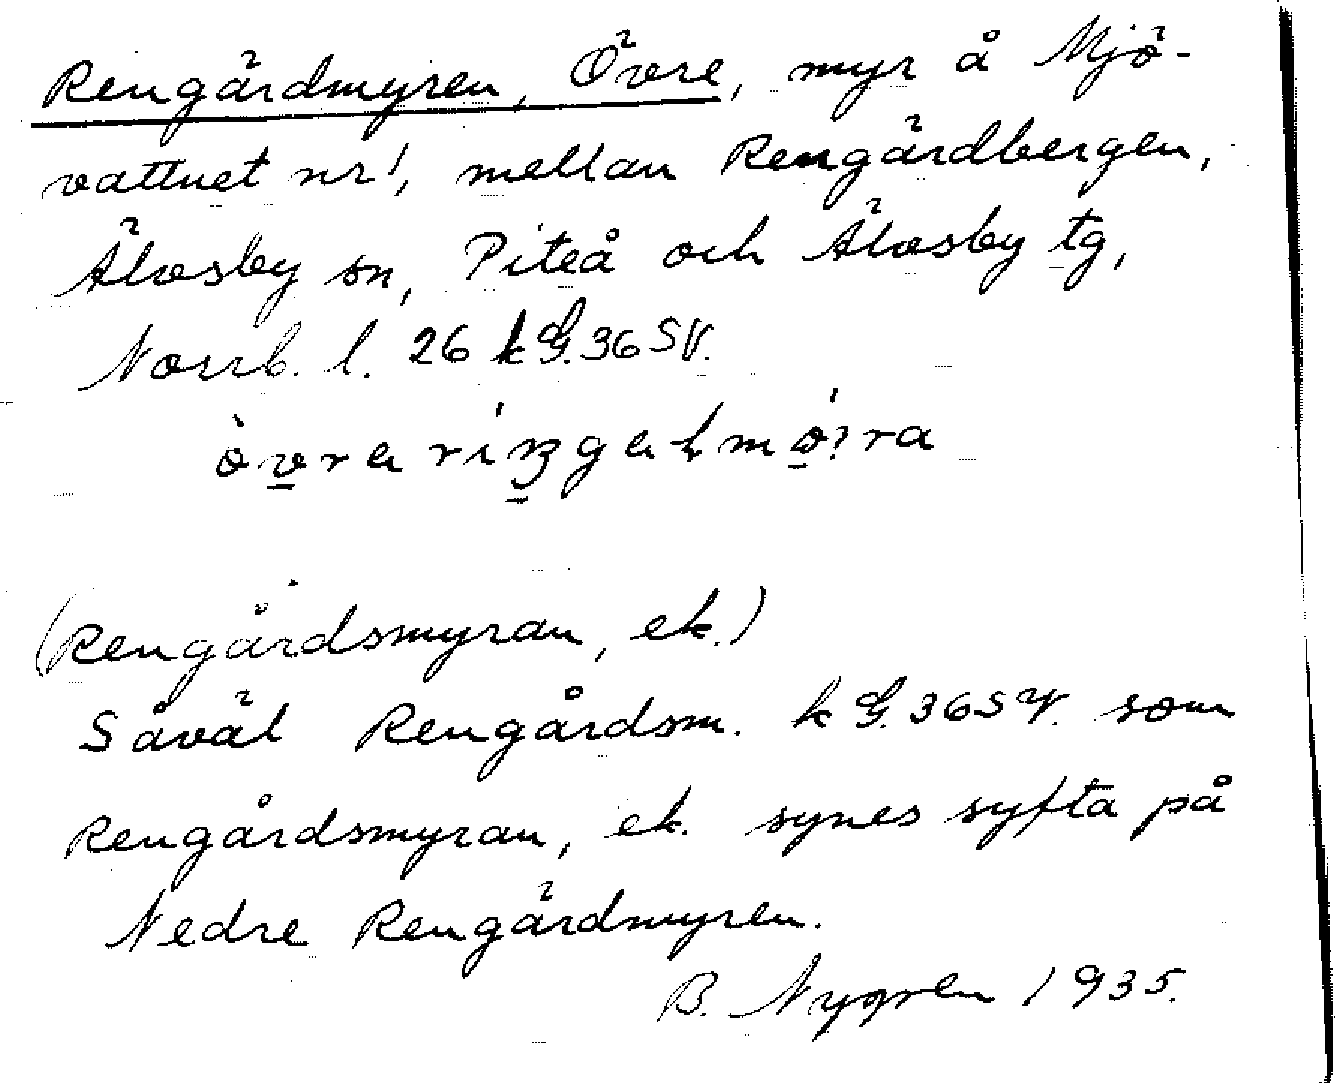 Rengårdmyren, Övre, myr å Mjö-
vattnet nr 1, mellan Rengårdbergen,
Älvsby sn, Piteå och Älvsby tg,
Norrb. l. 26 k G. 36 SV.

(Rengårdsmyran, ek.)
Såväl Rengårdsm. k G. 36 SV. som
Rengårdsmyran, ek. synes syfta på
Nedre Rengårdmyren.
B. Nygren 1935.